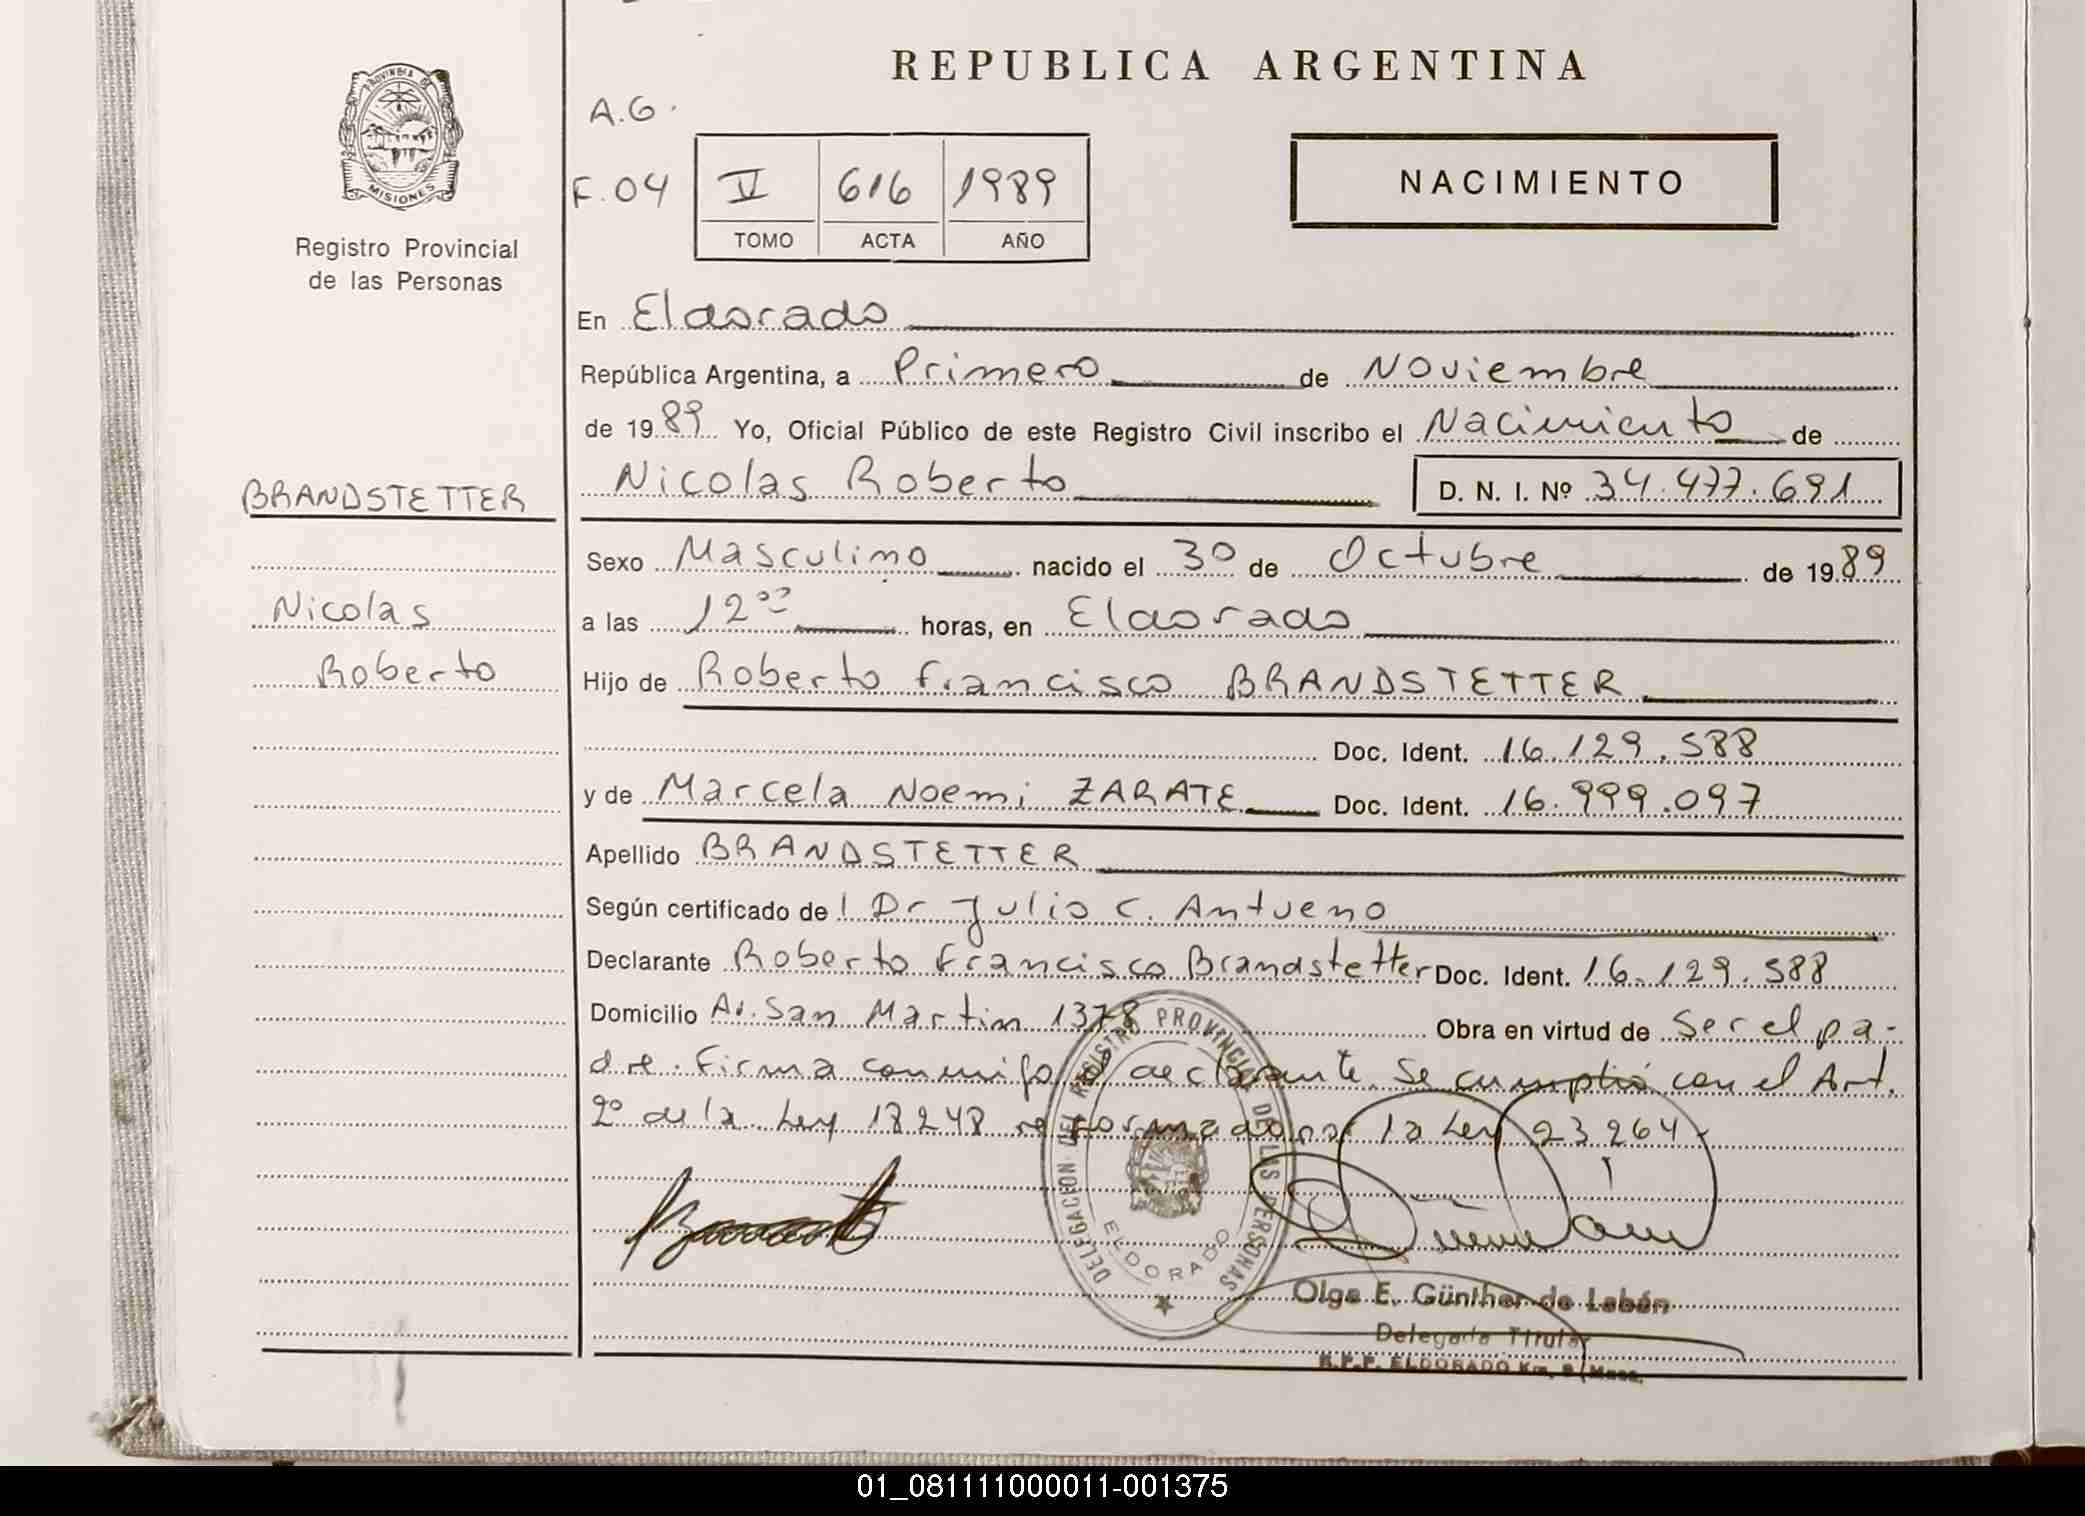 REPUBLICA ARGENTINA
PROVINCIA DE
MISIONES
Registro Provincial
de las Personas
A.G.
F.04
V 616 1989
TOMO ACTA AÑO
NACIMIENTO
En Eldorado
República Argentina, a Primero de Noviembre
de 1989 Yo, Oficial Público de este Registro Civil inscribo el Nacimiento de
BRANDSTETTER
Nicolas Roberto D. N. I. Nº 34.477.691
Sexo Masculino nacido el 30 de Octubre de 1989
Nicolas
a las 12 horas, en Eldorado
Roberto
Hijo de Roberto Francisco BRANDSTETTER
Doc. Ident. 16.129.588
y de Marcela Noemi ZARATE Doc. Ident. 16.999.097
Apellido BRANDSTETTER
Según certificado del Dr Julio C. Antueno
Declarante Roberto Francisco Brandstetter Doc. Ident. 16.129.588
Domicilio Av. San Martin 1378 Obra en virtud de ser el pa-
dre. Firma conmigo el declarante. Se cumplió con el Art.
2º de la Ley 18248 reformado por la Ley 23264
DELEGACION DEL REGISTRO PROVINCIAL DE LAS PERSONAS
ELDORADO
Olga E. Günther de Lebán
Delegada Titular
R.P.P. ELDORADO Km. 9 Mnes.
01_081111000011-001375